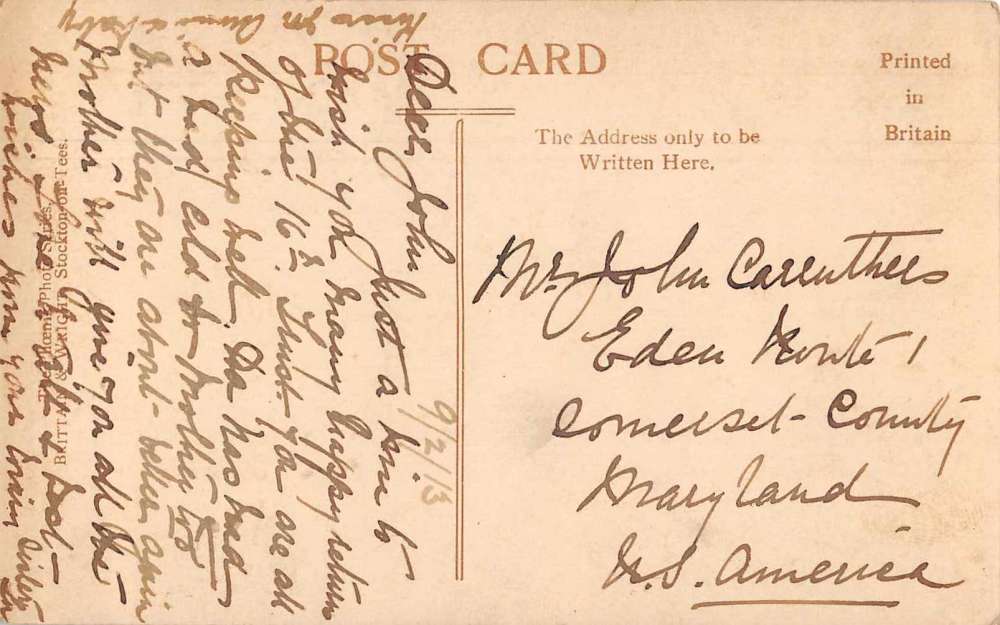 POST CARD
Printed
in
Britain
The Address only to be
Written Here.
Mr. John Carruthers
Eden Route 1
Somerset County
Maryland
U.S. America
9/2/13
Dear John Just a line to
wish you many happy returns
of the 16th. Trust you are all
keeping well. Da has had
a bad cold & Mother too
but they are about better again
Mother will give you all the
news.
wishes from your loving sister
Photo Series.
BRITTAIN & WRIGHT, Stockton-on-Tees.